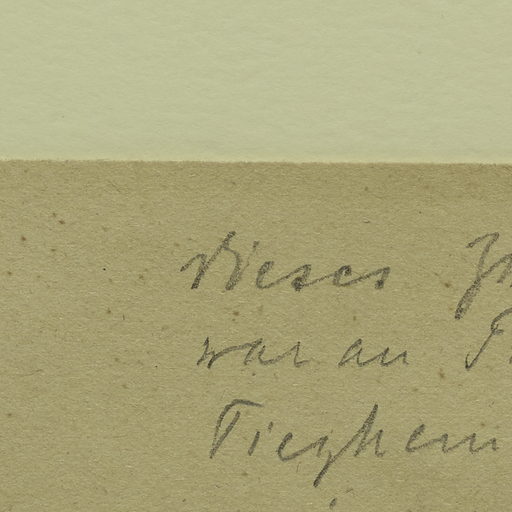 Dieses
war an
Tieghem